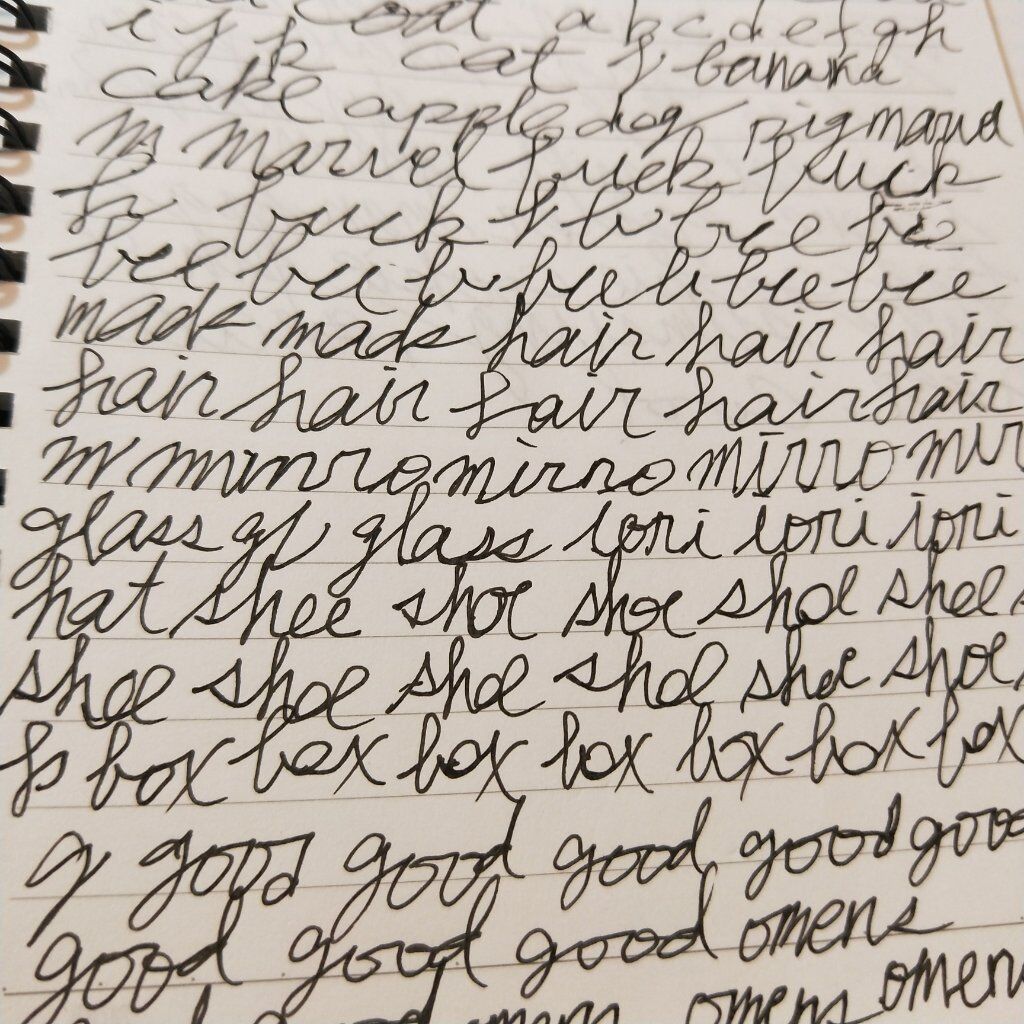 coat a b c d e f g h
i j k cat f banana
cake apple dog pig marvel
m marvel fuck fuck
fr fuck f tr tree tre
tree tree tr tree tr tree tree
made made hair hair hair
hair hair hair hair hair
m mirro mirro mirro mir
glass gl glass iori iori iori
hat shoe shoe shoe shoe shoe s
shoe shoe shoe shoe shoe shoe
b box box box box box box box
g good good good good good
good good good omens
good omens omens omens